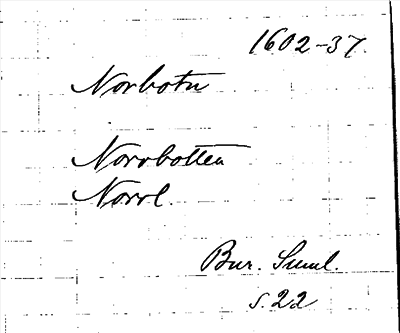 1602-37.
Norbotn
Norrbotten
Norrl.
Bur. Suml.
s. 22